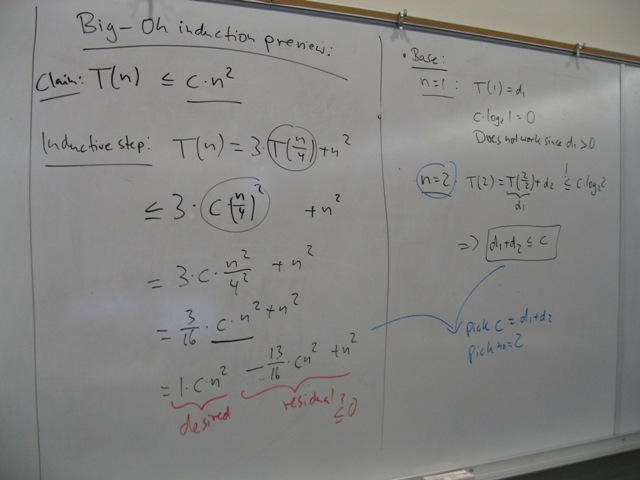 Big-Oh induction preview:
Claim: T(n) ≤ c·n²
Inductive step: T(n) = 3·T(n/4) + n²
≤ 3· c(n/4)² + n²
= 3·c·n²/4² + n²
= 3/16 · c·n² + n²
= 1·c·n² - 13/16 · cn² + n²
desired residual ≤? 0
• Base:
n=1: T(1) = d₁
c·log₂ 1 = 0
Does not work since d₁ > 0
n=2: T(2) = T(2/2) + d₂ ≤! c·log₂ 2
d₁
=> d₁+d₂ ≤ c
pick c = d₁+d₂
pick n₀=2